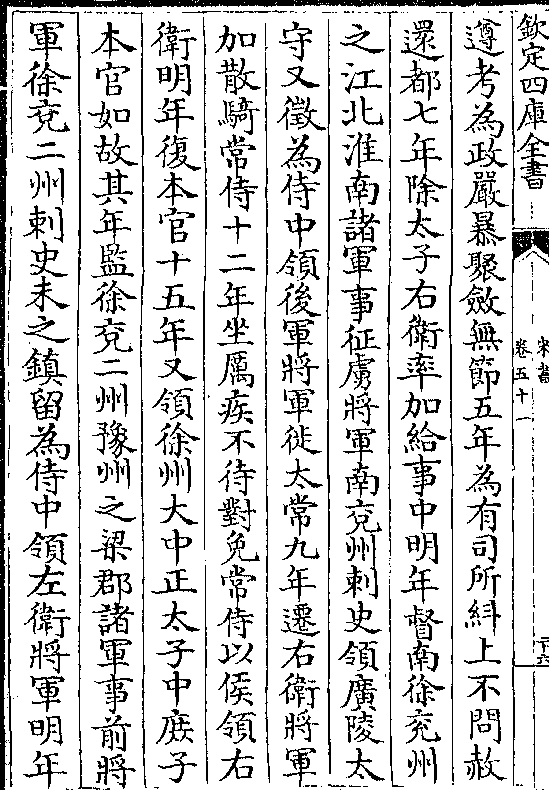 欽定四庫全書
宋書
卷五十一
遵考為政嚴暴聚斂無節五年為有司所糾上不問赦
還都七年除太子右衛率加給事中明年督南徐兖州
之江北淮南諸軍事征虜將軍南兖州刺史領廣陵太
守又徵為侍中領後軍將軍徙太常九年遷右衛將軍
加散騎常侍十二年坐厲疾不待對免常侍以侯領右
衛明年復本官十五年又領徐州大中正太子中庶子
本官如故其年監徐兖二州豫州之梁郡諸軍事前將
軍徐兖二州刺史未之鎮留為侍中領左衛將軍明年